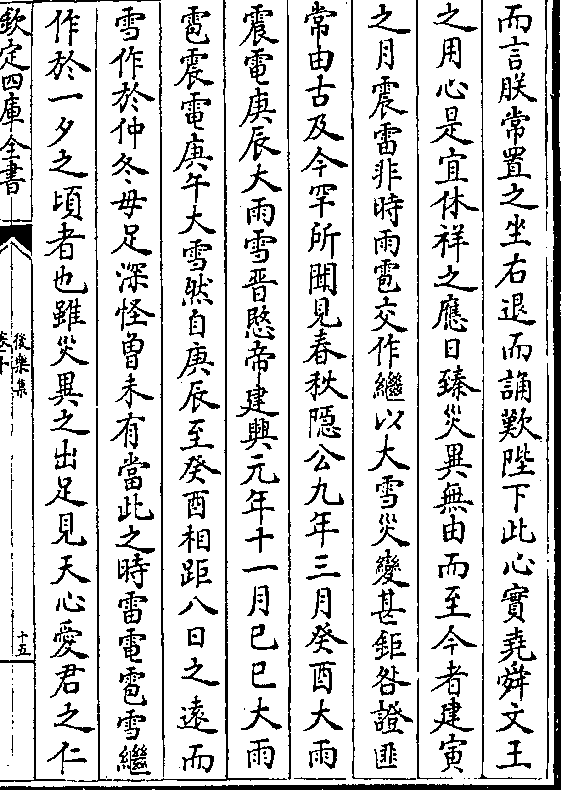 而言朕常置之坐右退而誦歎陛下此心實堯舜文王
之用心是宜休祥之應日臻災異無由而至今者建寅
之月震雷非時雨雹交作繼以大雪災變甚鉅咎證匪
常由古及今罕所聞見春秋隠公九年三月癸酉大雨
震電庚辰大雨雪晉愍帝建興元年十一月己巳大雨
雹震電庚午大雪然自庚辰至癸酉相距八日之遠而
雪作於仲冬毋足深怪曽未有當此之時雷電雹雪繼
作於一夕之頃者也雖災異之出足見天心愛君之仁
欽定四庫全書
後樂集
卷十
十五